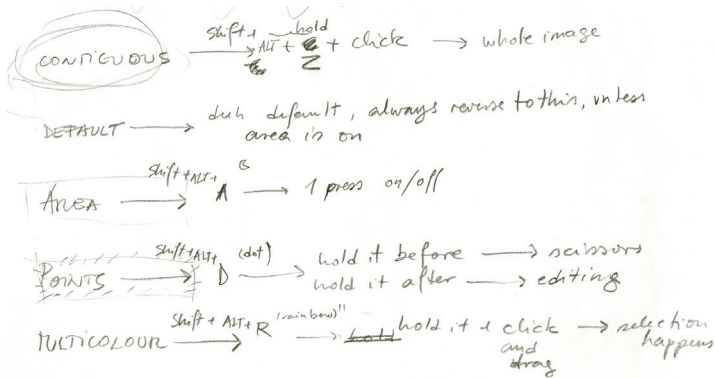 CONTIGUOUS → shift + ALT + Z hold + click → whole image
DEFAULT → duh default, always reverse to this, unless
area is on
AREA → shift + ALT + A → 1 press on/off
POINTS → shift + ALT + D (dot) → hold it before → scissors
hold it after → editing
MULTICOLOUR → shift + ALT + R (rainbow) → hold it + click → selection
and happens
drag